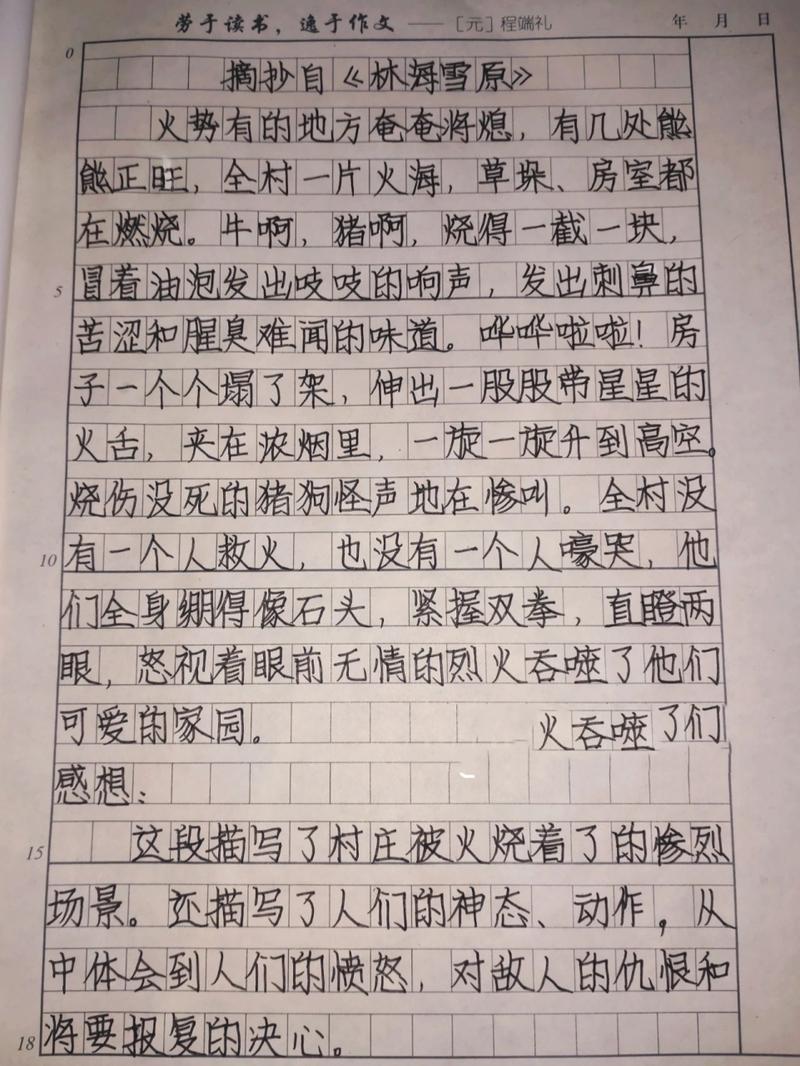 劳于读书，逸于作文 —— [元]程端礼
年 月 日
0
摘抄自《林海雪原》
火势有的地方奄奄将熄，有几处熊
熊正旺，全村一片火海，草垛、房室都
在燃烧。牛啊，猪啊，烧得一截一块，
5 冒着油泡发出吱吱的响声，发出刺鼻的
苦涩和腥臭难闻的味道。哗哗啦啦！房
子一个个塌了架，伸出一股股带星星的
火舌，夹在浓烟里，一旋一旋升到高空。
烧伤没死的猪狗怪声地在惨叫。全村没
10 有一个人救火，也没有一个人嚎哭，他
们全身绷得像石头，紧握双拳，直瞪两
眼，怒视着眼前无情的烈火吞噬了他们
可爱的家园。 火吞噬了们
感想：
15 这段描写了村庄被火烧着了的惨烈
场景。还描写了人们的神态、动作，从
中体会到人们的愤怒，对敌人的仇恨和
18 将要报复的决心。